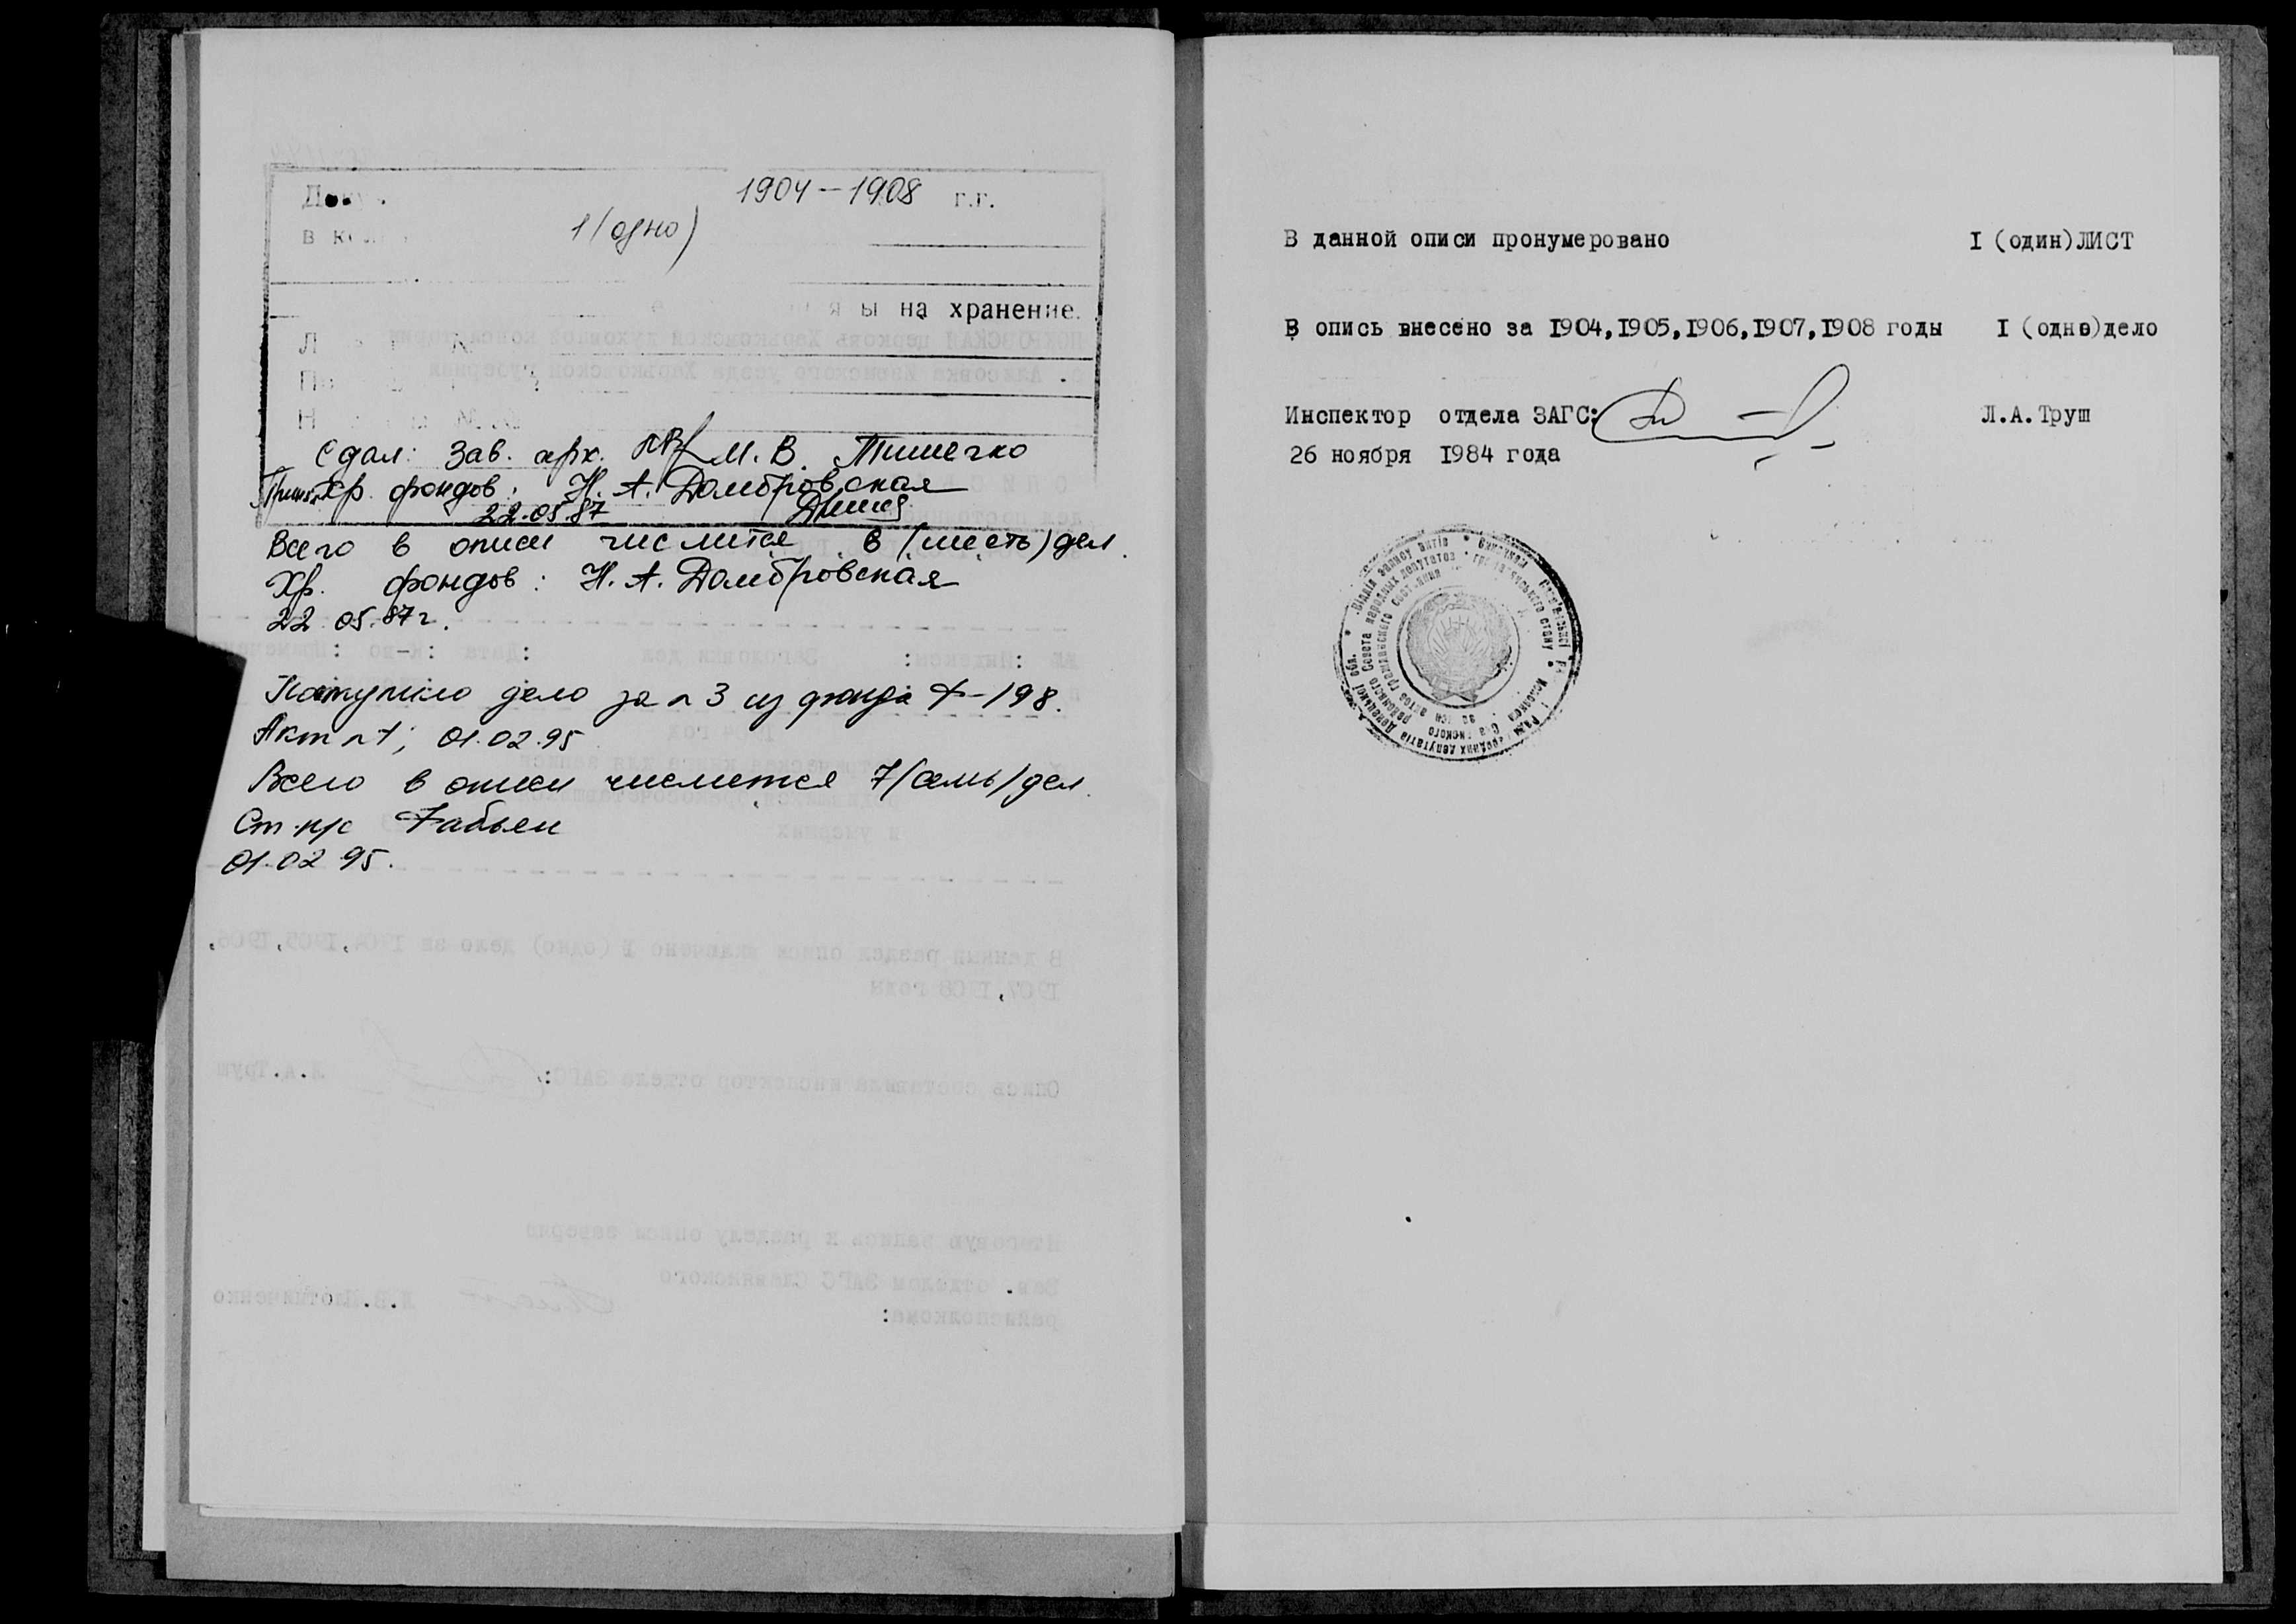 1904-1908 г.г.
1 (одно)
на хранение.
Сдал: Зав. арх. М. В.
Хр. фондов: Н. А. Домбровская
22.05.87
Всего в описи числится 6 (шесть) дел.
Хр. фондов: Н. А. Домбровская
22.05.87г.
Поступило дело за n 3 из фонда Ф-198.
Акт n 1; 01.02.95
Всего в описи числится 7 (семь) дел.
Ст. н/с
01.02.95.
В данной описи пронумеровано I (один)ЛИСТ
В опись внесено за I904,I905,I906,I907,I908 годы I (одно)дело
Инспектор отдела ЗАГС: Л.А.Труш
26 ноября I984 года